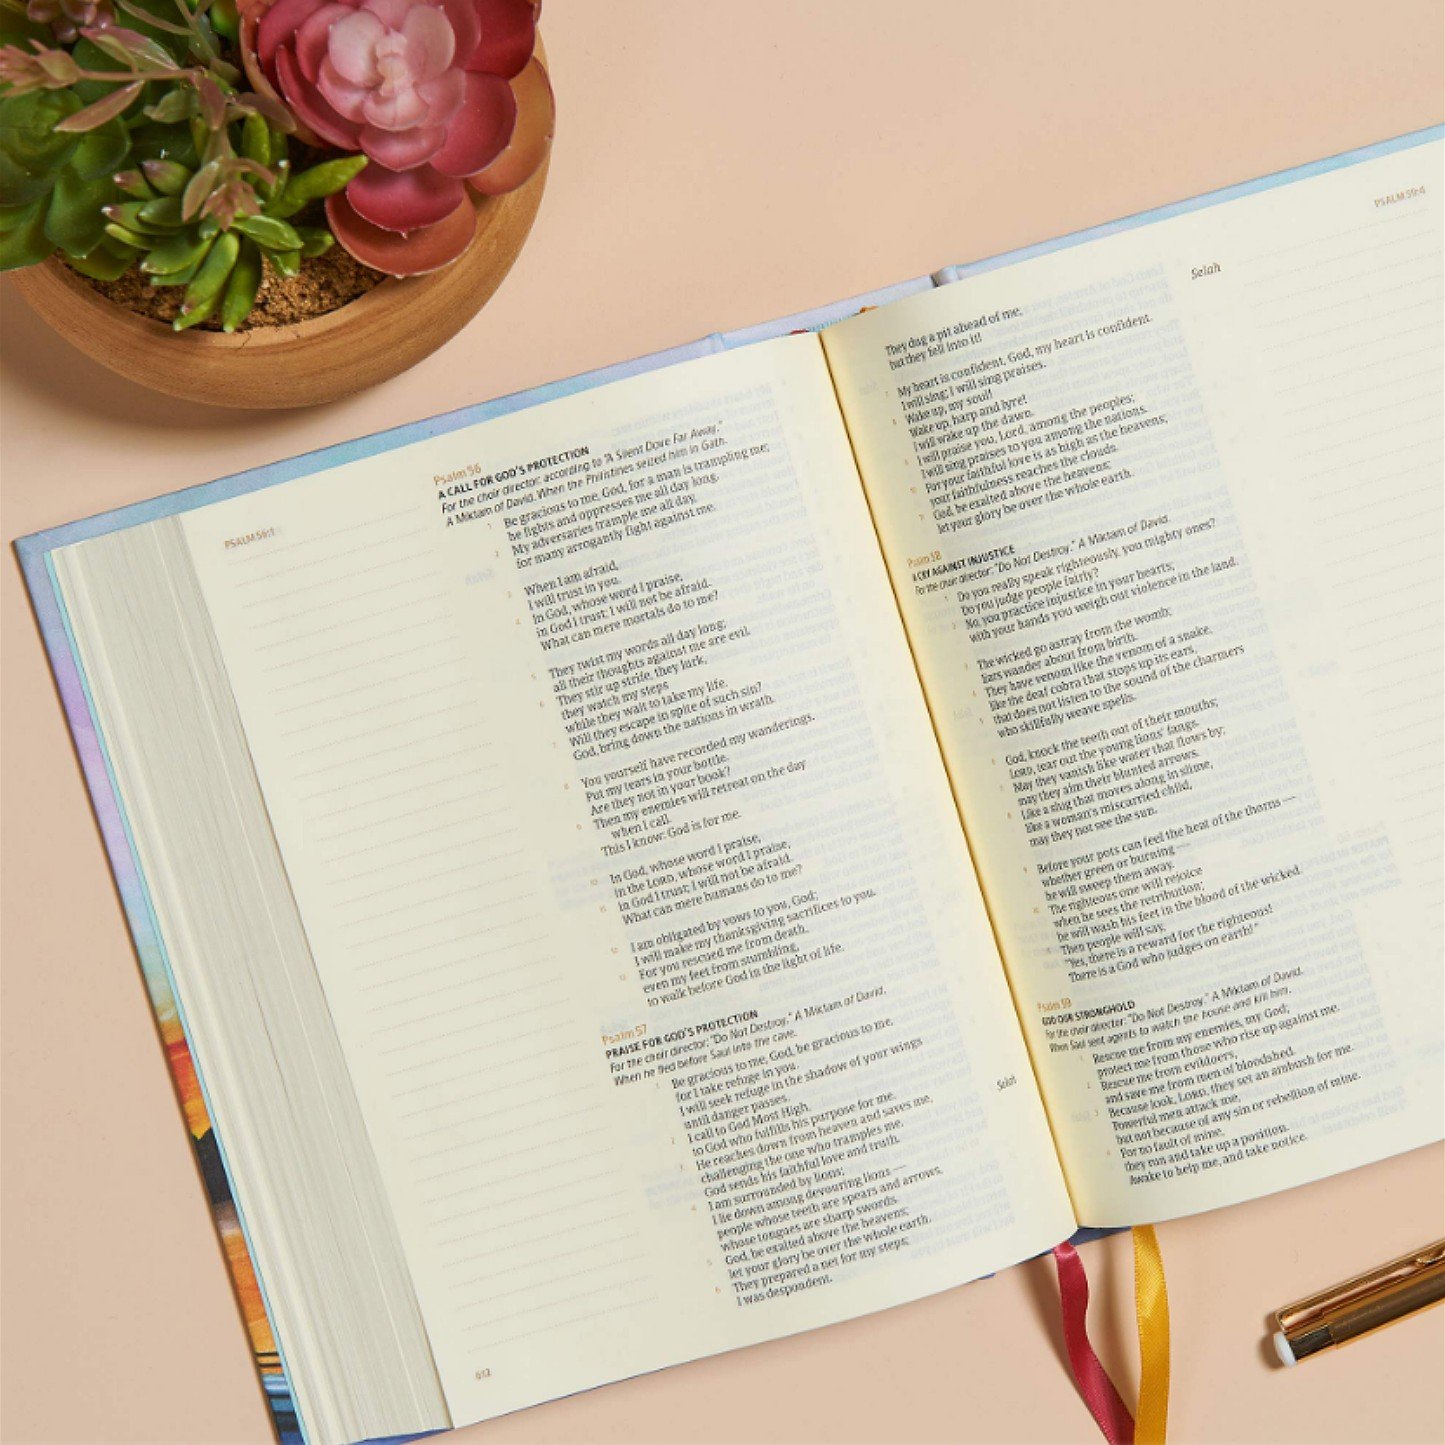 PSALM 56:1
Psalm 56
A CALL FOR GOD'S PROTECTION
For the choir director: according to "A Silent Dove Far Away."
A Miktam of David. When the Philistines seized him in Gath.
1 Be gracious to me, God, for a man is trampling me;
he fights and oppresses me all day long.
2 My adversaries trample me all day,
for many arrogantly fight against me.
3 When I am afraid,
I will trust in you.
4 In God, whose word I praise,
in God I trust; I will not be afraid.
What can mere mortals do to me?
5 They twist my words all day long;
all their thoughts against me are evil.
6 They stir up strife, they lurk,
they watch my steps
while they wait to take my life.
7 Will they escape in spite of such sin?
God, bring down the nations in wrath.
8 You yourself have recorded my wanderings.
Put my tears in your bottle.
Are they not in your book?
9 Then my enemies will retreat on the day
when I call.
This I know: God is for me.
10 In God, whose word I praise,
in the LORD, whose word I praise,
11 in God I trust; I will not be afraid.
What can mere humans do to me?
12 I am obligated by vows to you, God;
I will make my thanksgiving sacrifices to you.
13 For you rescued me from death,
even my feet from stumbling,
to walk before God in the light of life.
Psalm 57
PRAISE FOR GOD'S PROTECTION
For the choir director: "Do Not Destroy." A Miktam of David.
When he fled before Saul into the cave.
1 Be gracious to me, God, be gracious to me,
for I take refuge in you.
I will seek refuge in the shadow of your wings
until danger passes.
2 I call to God Most High,
to God who fulfills his purpose for me.
3 He reaches down from heaven and saves me,
challenging the one who tramples me.
Selah
God sends his faithful love and truth.
4 I am surrounded by lions;
I lie down among devouring lions —
people whose teeth are spears and arrows,
whose tongues are sharp swords.
5 God, be exalted above the heavens;
let your glory be over the whole earth.
6 They prepared a net for my steps;
I was despondent.
612
PSALM 59:4
They dug a pit ahead of me,
but they fell into it!
Selah
7 My heart is confident, God, my heart is confident.
I will sing; I will sing praises.
8 Wake up, my soul!
Wake up, harp and lyre!
I will wake up the dawn.
9 I will praise you, Lord, among the peoples;
I will sing praises to you among the nations.
10 For your faithful love is as high as the heavens;
your faithfulness reaches the clouds.
11 God, be exalted above the heavens;
let your glory be over the whole earth.
Psalm 58
A CRY AGAINST INJUSTICE
For the choir director: "Do Not Destroy." A Miktam of David.
1 Do you really speak righteously, you mighty ones?
Do you judge people fairly?
2 No, you practice injustice in your hearts;
with your hands you weigh out violence in the land.
3 The wicked go astray from the womb;
liars wander about from birth.
4 They have venom like the venom of a snake,
like the deaf cobra that stops up its ears,
5 that does not listen to the sound of the charmers
who skillfully weave spells.
6 God, knock the teeth out of their mouths;
LORD, tear out the young lions' fangs.
7 May they vanish like water that flows by;
may they aim their blunted arrows.
8 Like a slug that moves along in slime,
like a woman's miscarried child,
may they not see the sun.
9 Before your pots can feel the heat of the thorns —
whether green or burning —
he will sweep them away.
10 The righteous one will rejoice
when he sees the retribution;
he will wash his feet in the blood of the wicked.
11 Then people will say,
"Yes, there is a reward for the righteous!
There is a God who judges on earth!"
Psalm 59
GOD OUR STRONGHOLD
For the choir director: "Do Not Destroy." A Miktam of David.
When Saul sent agents to watch the house and kill him.
1 Rescue me from my enemies, my God;
protect me from those who rise up against me.
2 Rescue me from evildoers,
and save me from men of bloodshed.
3 Because look, LORD, they set an ambush for me.
Powerful men attack me,
but not because of any sin or rebellion of mine.
4 For no fault of mine,
they run and take up a position.
Awake to help me, and take notice.